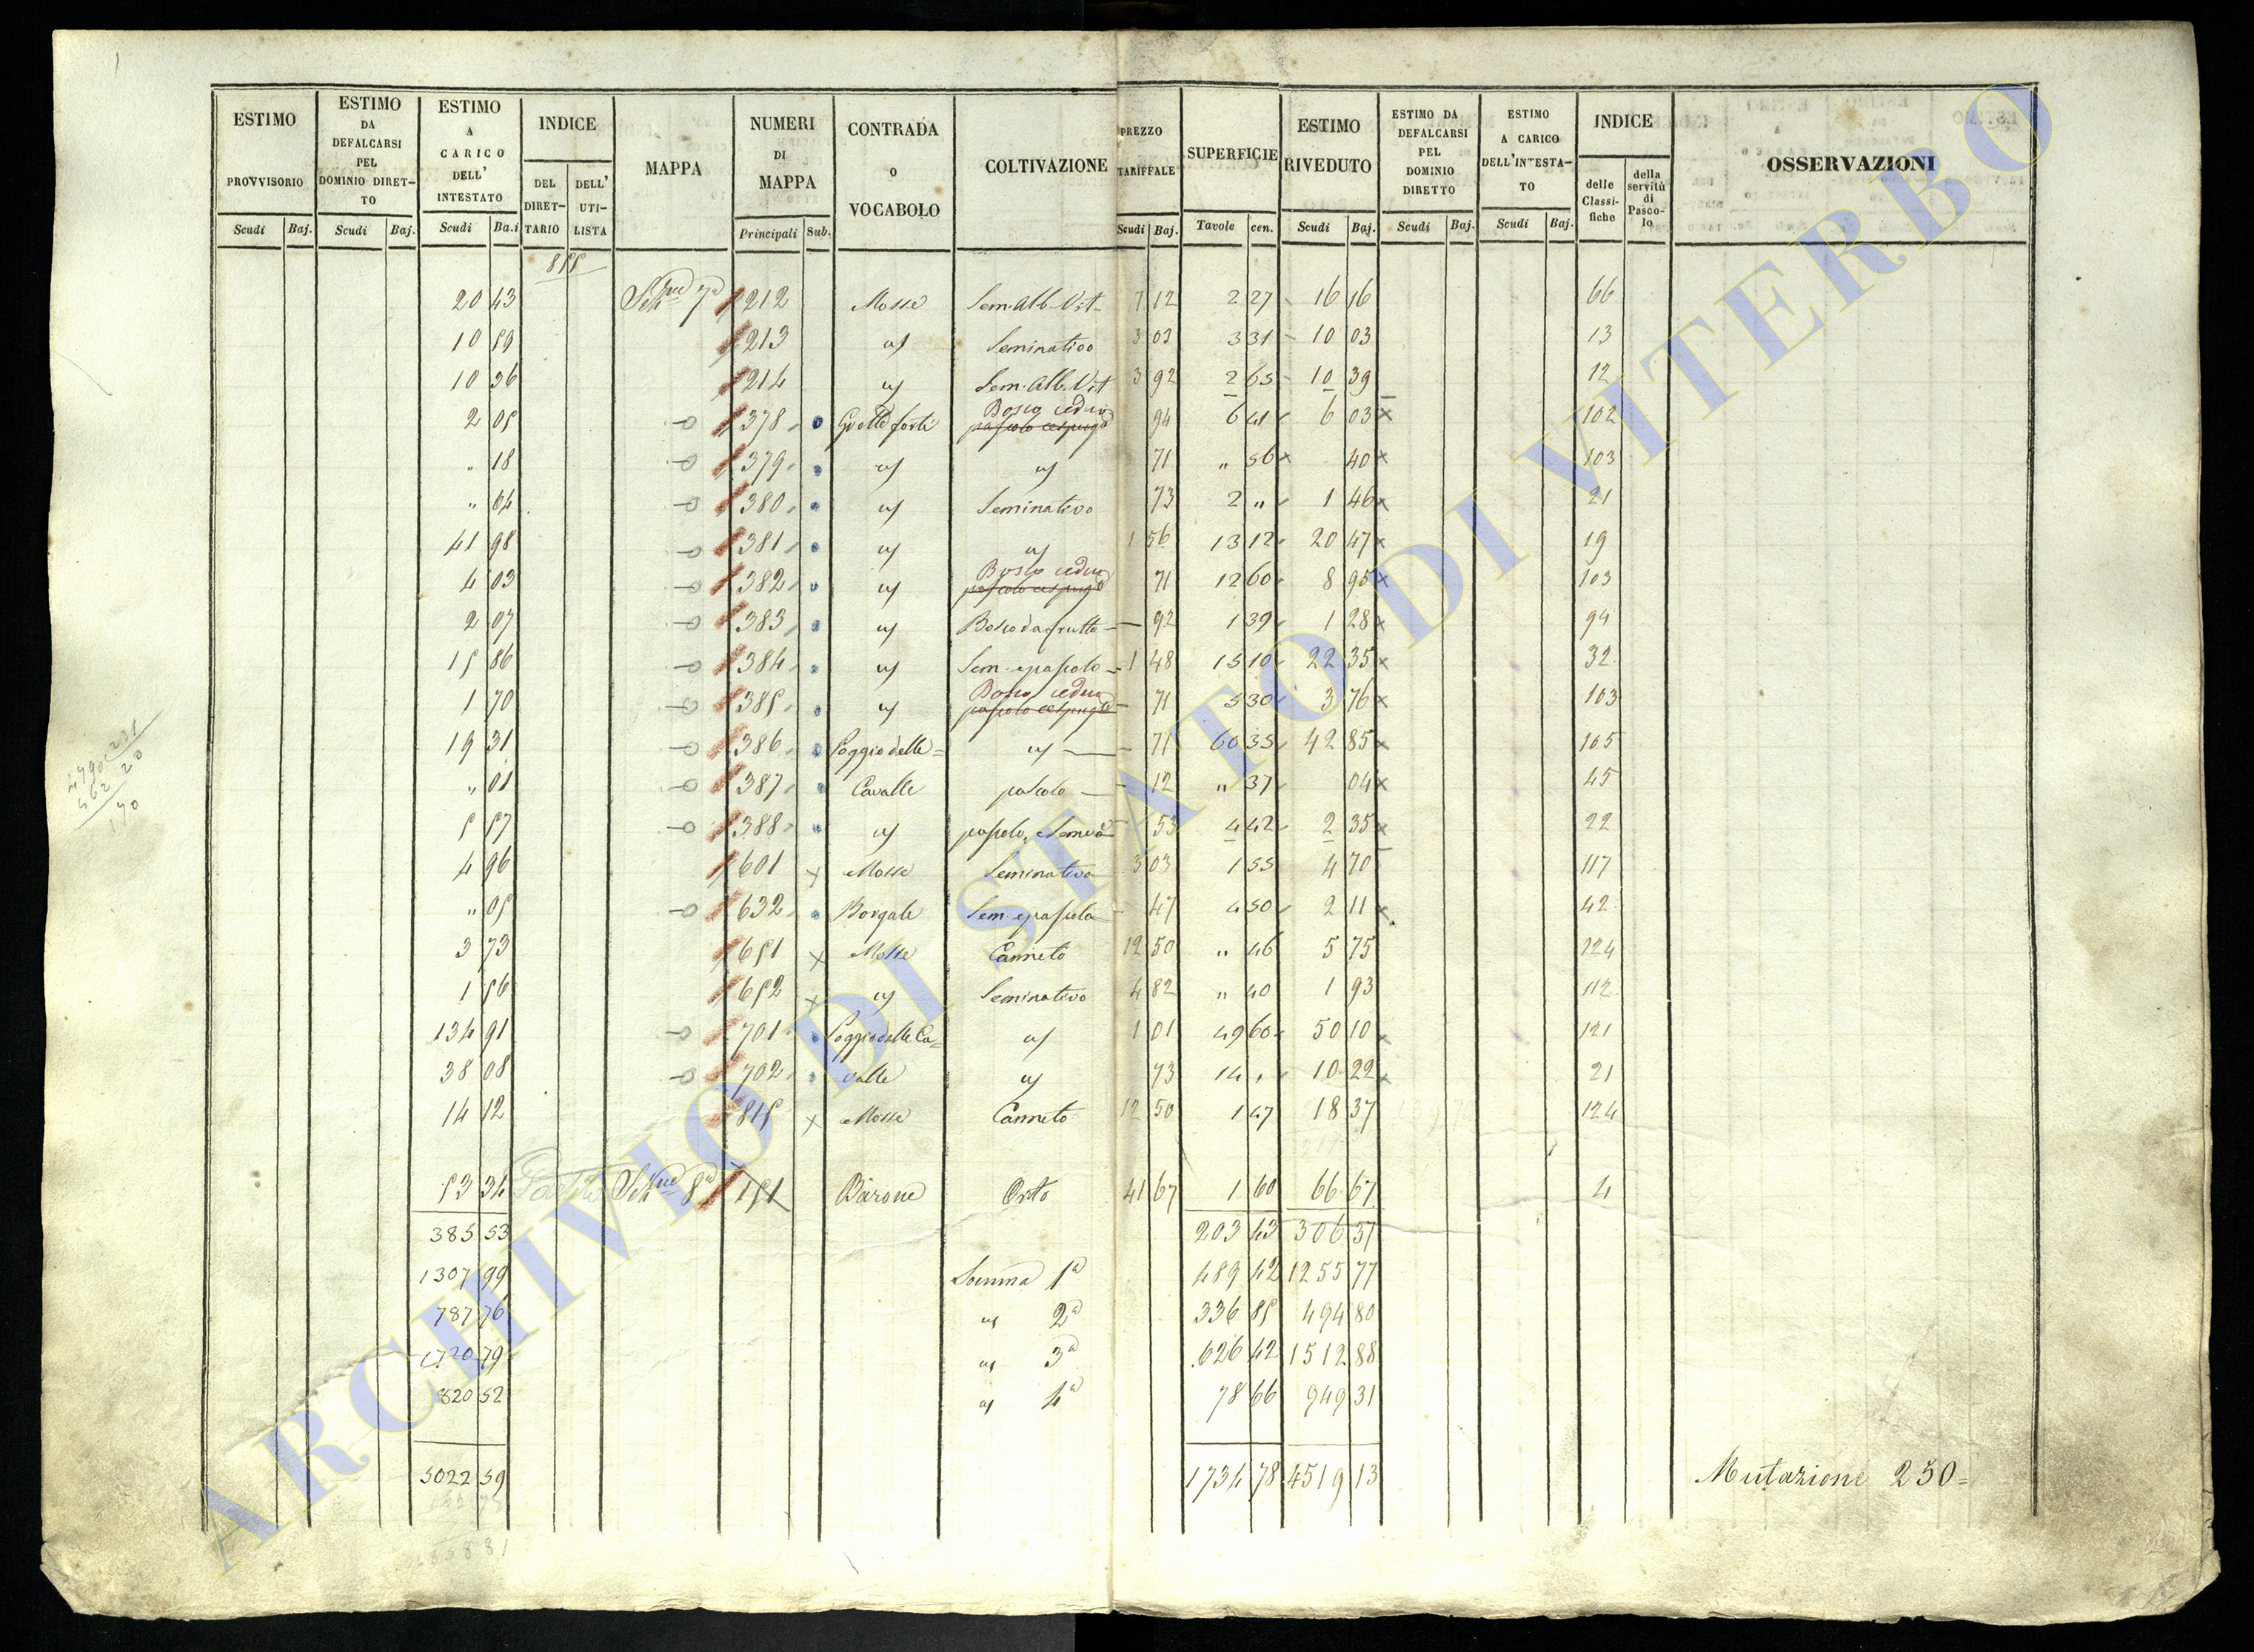 ESTIMO PROVVISORIO Scudi Baj.
ESTIMO DA DEFALCARSI PEL DOMINIO DIRET-TO Scudi Baj.
ESTIMO A CARICO DELL' INTESTATO Scudi Ba.i
INDICE DEL DIRET-TARIO DELL' UTI-LISTA
MAPPA
NUMERI DI MAPPA Principali Sub.
CONTRADA O VOCABOLO
COLTIVAZIONE
PREZZO TARIFFALE Scudi Baj.
SUPERFICIE Tavole cen.
ESTIMO RIVEDUTO Scudi Baj.
ESTIMO DA DEFALCARSI PEL DOMINIO DIRETTO Scudi Baj.
ESTIMO A CARICO DELL'INTESTA-TO Scudi Baj.
INDICE delle Classi-fiche della servitù di Pasco-lo
OSSERVAZIONI
855
20 43 7a 212 Mosse Sem. Alb. Vit. 7 12 2 27 16 16 66
10 59 213 us Seminativo 3 03 3 31 10 03 13
10 36 214 us Sem. Alb. Vit 3 92 2 65 10 39 12
2 05 378 Grotte forti Bosco ceduo pascolo cespug 94 6 41 6 03 x 102
" 18 379 us us 71 " 56 40 x 103
" 64 380 us Seminativo 73 2 " 1 46 x 21
41 98 381 us us 1 56 13 12 20 47 x 19
4 03 382 us Bosco ceduo pascolo cespug 71 12 60 8 95 x 103
2 07 383 us Bosco da frutto 92 1 39 1 28 x 94
15 86 384 us Sem. e pascolo 1 48 15 10 22 35 x 32
1 70 385 us Bosco ceduo pascolo cespug 71 5 30 3 76 x 103
19 31 386 Poggio delle us 71 60 35 42 85 x 105
" 01 387 Cavalle pascolo 12 " 37 04 x 45
5 57 388 us pascolo e Semivo 53 4 42 2 35 x 22
4 96 601 x Mosse Seminativo 3 03 1 55 4 70 117
" 05 632 Borgale Sem. e pascolo 47 4 50 2 11 x 42
3 73 651 x Mosse Canneto 12 50 " 46 5 75 124
1 56 652 x us Seminativo 4 82 " 40 1 93 112
134 91 701 Poggio delle Ca= us 1 01 49 60 50 10 x 121
38 08 702 valle us 73 14 " 10 22 x 21
14 12 815 x Mosse Canneto 12 50 1 47 18 37 124
53 34 8a 151 Barone Orto 41 67 1 60 66 67 4
385 53 203 43 306 37
1307 99 Somma 1a 489 42 1255 77
787 76 us 2a 336 85 494 80
1720 79 us 3a 626 42 1512 88
820 52 us 4a 78 66 949 31
5022 59 1734 78 4519 13
Mutazione 250=
ARCHIVIO DI STATO DI VITERBO